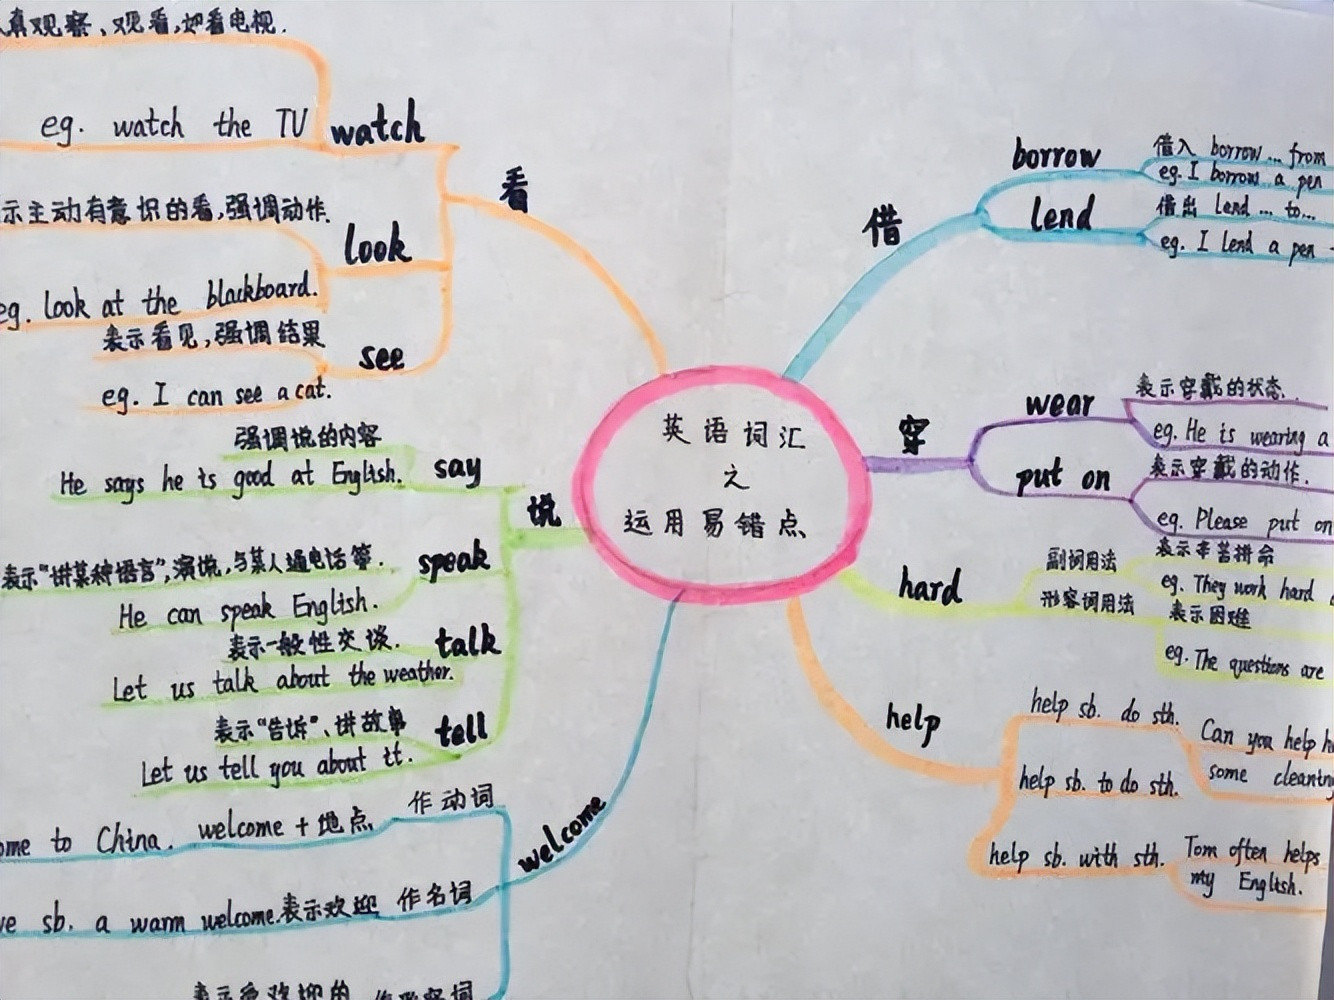 英语词汇
之
运用易错点
看
watch
真观察、观看,如看电视.
eg. watch the TV
look
示主动有意识的看,强调动作.
eg. look at the blackboard.
see
表示看见,强调结果
eg. I can see a cat.
说
say
强调说的内容
He says he is good at English.
speak
表示"讲某种语言",演说,与某人通电话等.
He can speak English.
talk
表示一般性交谈.
Let us talk about the weather.
tell
表示"告诉"、讲故事
Let us tell you about it.
welcome
作动词
welcome + 地点
ome to China.
作名词
ve sb. a warm welcome.表示欢迎
作形容词
表示受欢迎的
借
borrow
借入 borrow ... from
eg. I borrow a pen
lend
借出 lend ... to...
eg. I lend a pen
穿
wear
表示穿戴的状态.
eg. He is wearing a
put on
表示穿戴的动作.
eg. Please put on
hard
副词用法
表示辛苦拼命
eg. They work hard
形容词用法
表示困难
eg. The questions are
help
help sb. do sth.
help sb. to do sth.
Can you help
some cleaning
help sb. with sth.
Tom often helps
my English.